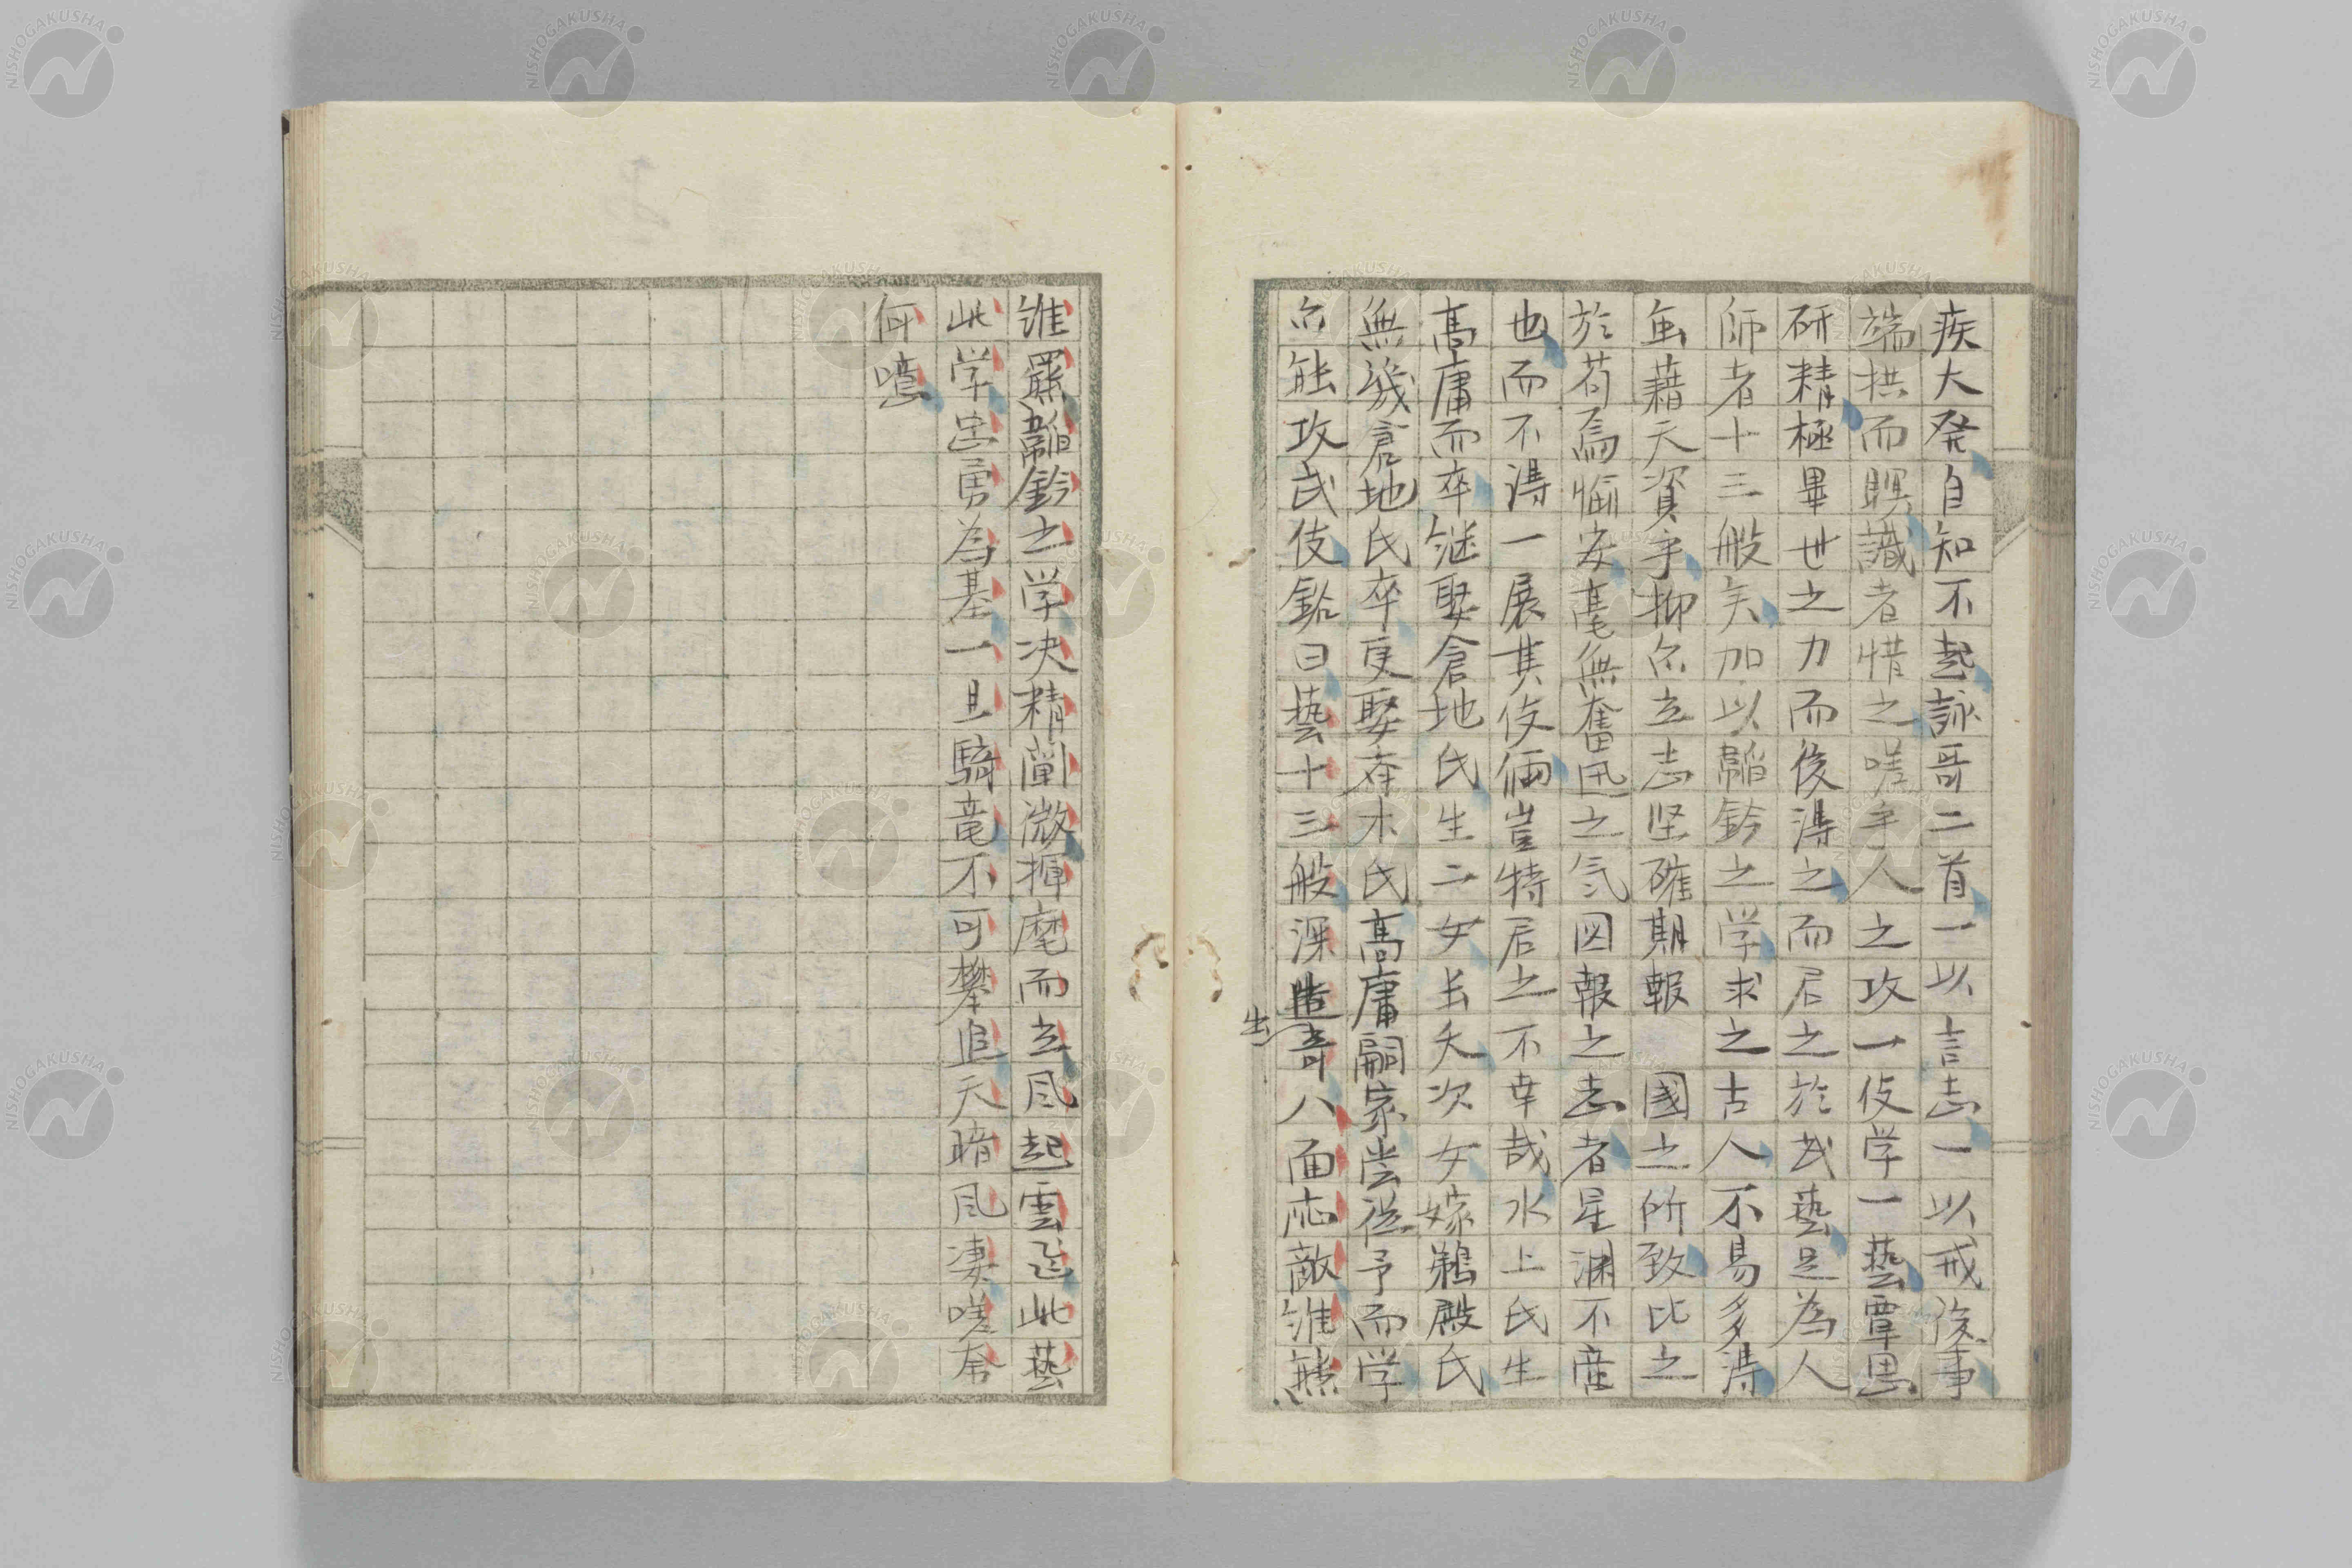 疾大発自知不起詠哥二首一以言志一以戒後事
端拱而瞑識者惜之嗟乎人之攻一伎学一藝覃思
研精極畢世之力而後得之而居之於武藝足為人
師者十三般矣加以韜鈐之学求之古人不易多得
虽藉天資乎抑尓立志坚確期報 國之所致比之
於苟焉惴安毫無奮迅之気図報之志者星渊不啻
也而不得一展其伎倆豈特居之不幸哉水上氏生
高庸而卒継娶倉地氏生二女長夭次女嫁鵜殿氏
無幾倉地氏卒更娶斎木氏高庸嗣家尝従予而学
尓能攻武伎銘曰藝十三般深造出奇八面応敵維熊
維羆韜鈐之学决精闡微揮麾而立风起雲飛此藝
此学忠勇為基一旦騎竜不可攀追天暗风凄嗟奈
何噫
NISHOGAKUSHA